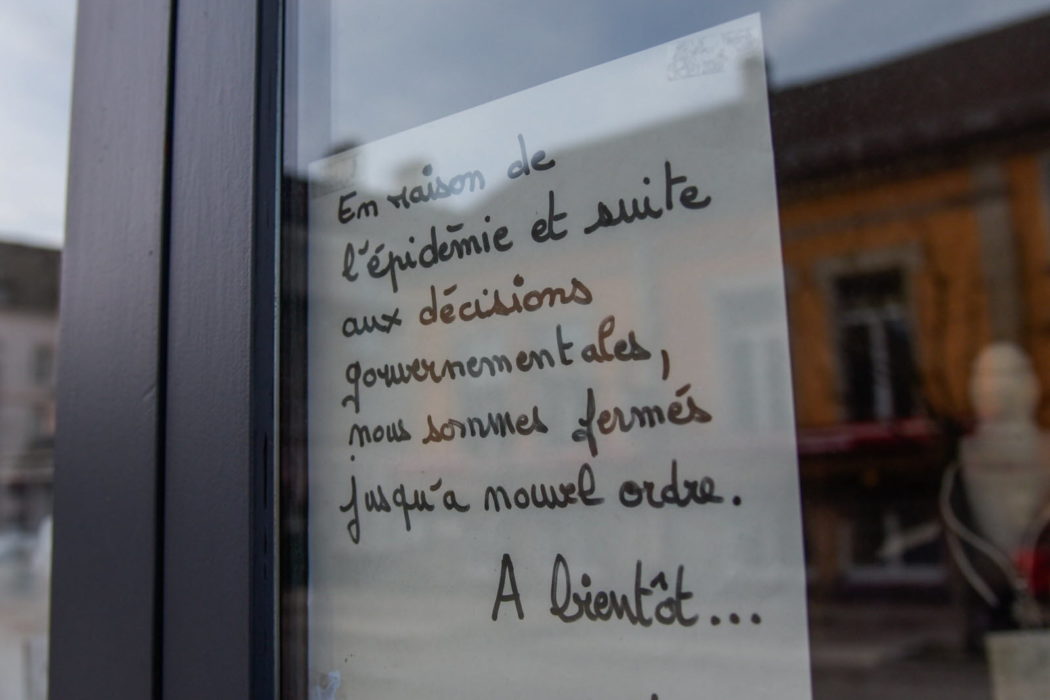 En raison de
l'épidémie et suite
aux décisions
gouvernementales,
nous sommes fermés
jusqu'a nouvel ordre.
A bientôt...